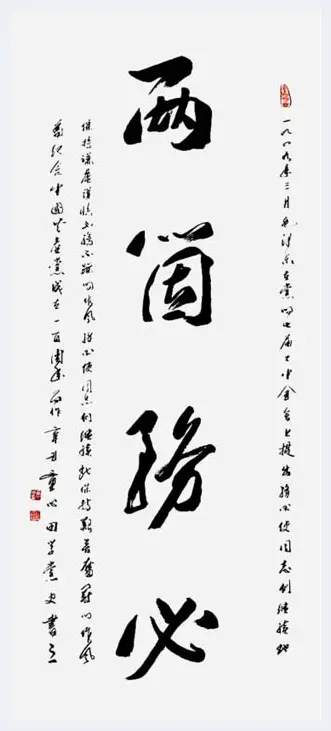 一九四九年三月毛泽东在黨的七届二中全会上提出務必使同志们继续地
兩箇務必
保持谦虚谨慎不骄不躁的作风務必使同志们继续地保持艱苦奮鬥的作风
為纪念中國共產黨成立一百周年而作 辛丑 田学黨史書之一